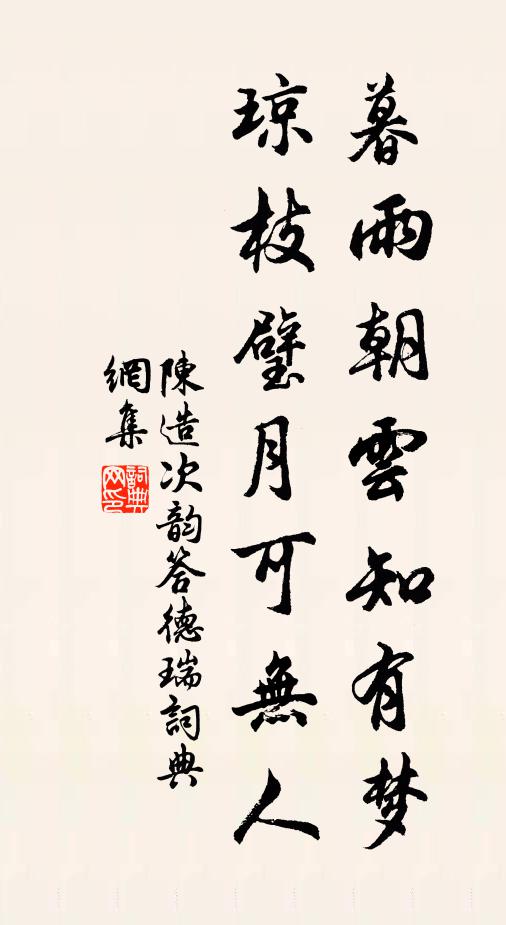 暮雨朝雲知有梦
琼枝璧月可無人
陳造次韵答德瑞詞典
網集
詞典網印